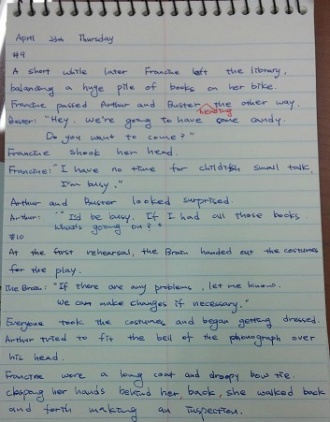 April 26th Thursday
#9
A short while later Francine left the library,
balancing a huge pile of books on her bike.
Francine passed Arthur and Buster heading the other way.
Buster: "Hey. we're going to have some candy.
Do you want to come?"
Francine shook her head.
Francine: "I have no time for childish small talk.
I'm busy."
Arthur and Buster looked surprised.
Arthur: "I'd be busy. If I had all those books.
What's going on?"
#10
At the first rehearsal, the Brain handed out the costumes
for the play.
The Brain: "If there are any problems, let me know.
We can make changes if necessary."
Everyone took the costumes and began getting dressed.
Arthur tried to fit the bell of the phonograph over
his head.
Francine wore a long coat and droopy bow tie.
clasping her hands behind her back, she walked back
and forth making an inspection.